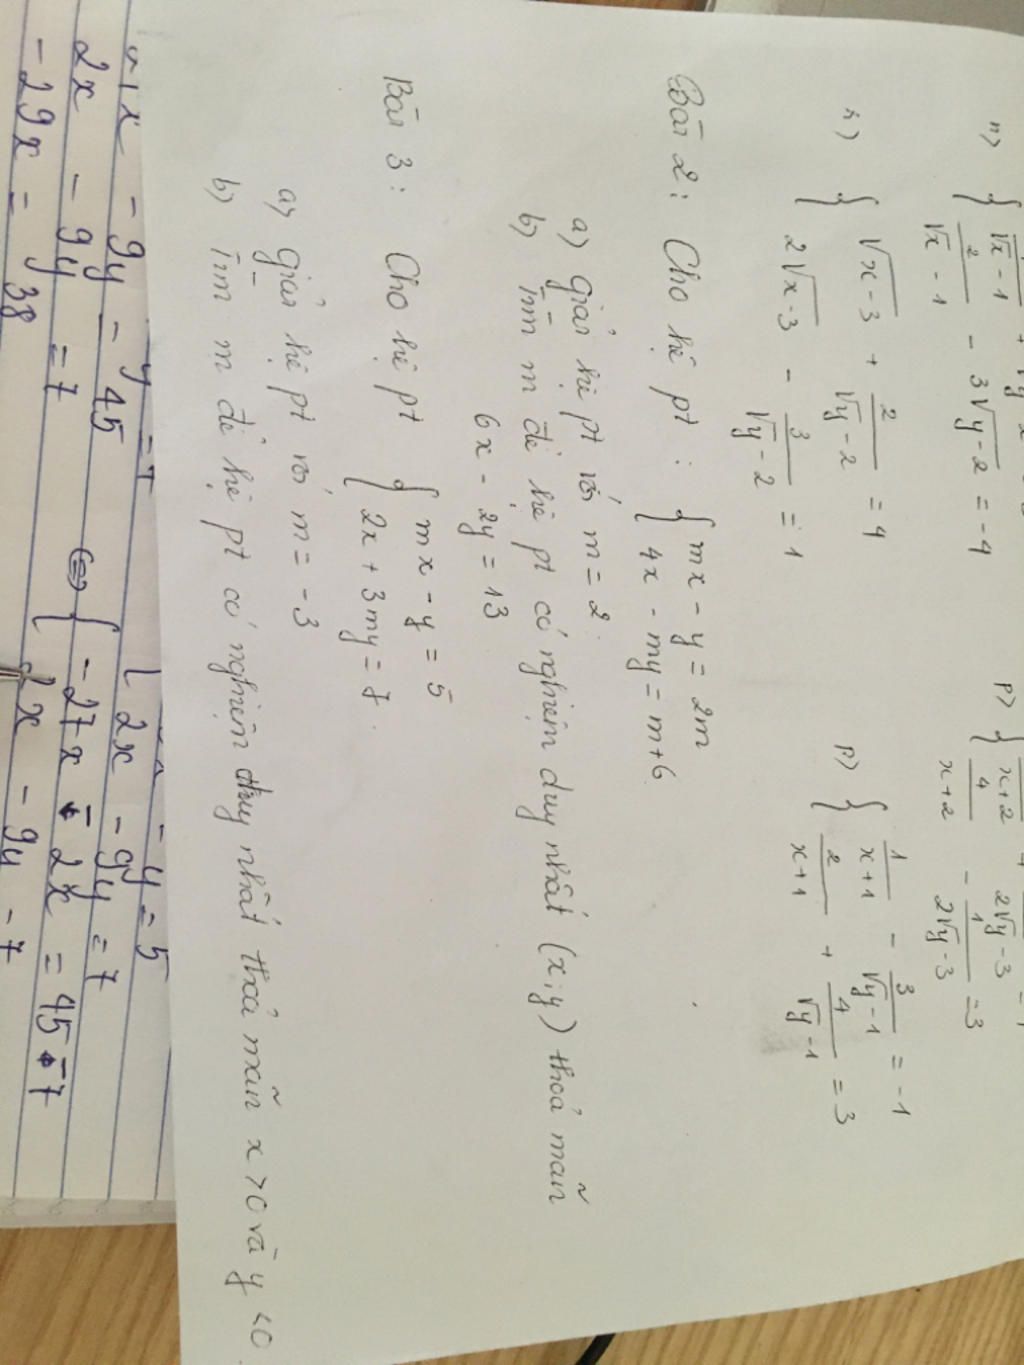 n) { 1/(√x - 1) +
2/(√x - 1) - 3√y-2 = -4
p) {
x+2
4/(x+2) - 1/(2√y-3) = 3
2√y-3
r) { √x-3 + 2/(√y-2) = 4
2√x-3 - 3/(√y-2) = 1
p) { 1/(x+1) - 3/(√y-1) = -1
2/(x+1) + 4/(√y-1) = 3
Bài 2: Cho hệ pt: { mx - y = 2m
4x - my = m+6
a) giải hệ pt với m = 2.
b) Tìm m để hệ pt có nghiệm duy nhất (x;y) thoả mãn
6x - 2y = 13
Bài 3: Cho hệ pt { mx - y = 5
2x + 3my = 7.
a) giải hệ pt với m = -3
b) Tìm m để hệ pt có nghiệm duy nhất thoả mãn x > 0 và y < 0.
- y = 5
2x - 9y = 7
- 9y = 45
2x - 9y = 7
⇔ { -27x - 2x = 45 - 7
2x - 9y = 7
-29x = 38